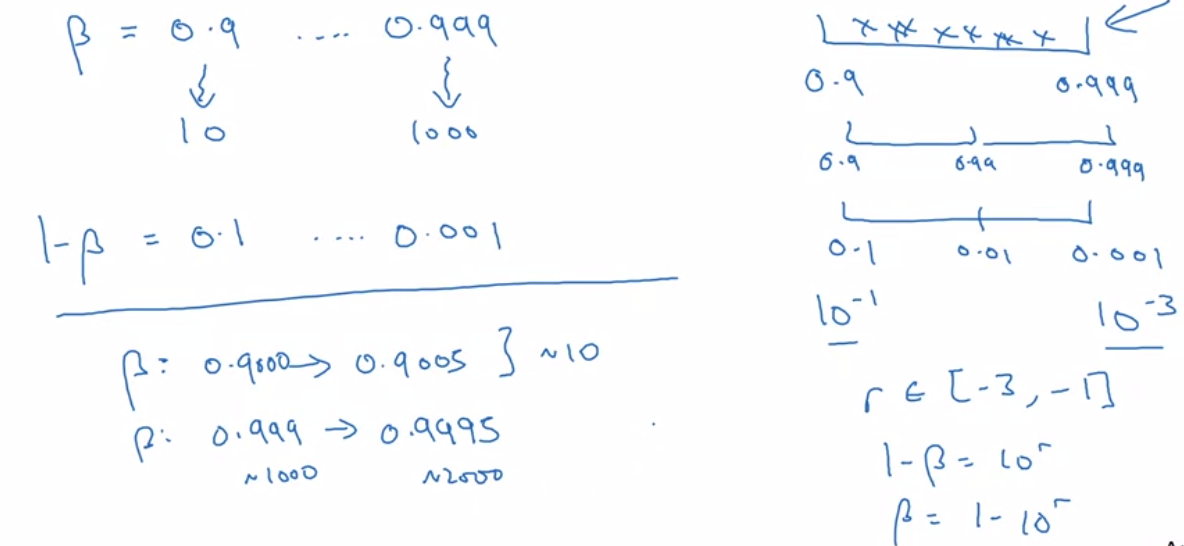 β = 0.9 .... 0.999
10 1000
1-β = 0.1 .... 0.001
β: 0.9000 → 0.9005 } ~10
β: 0.999 → 0.9995
~1000 ~2000
0.9 0.999
0.9 0.99 0.999
0.1 0.01 0.001
10⁻¹ 10⁻³
r ∈ [-3, -1]
1-β = 10ʳ
β = 1-10ʳ